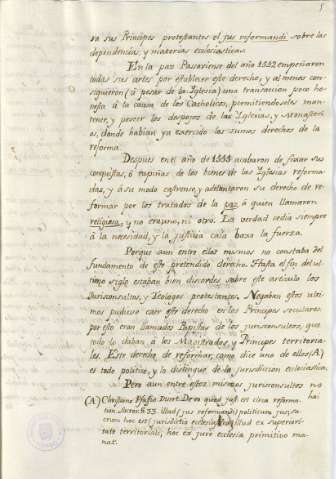 5
ra sus Principes protestantes el jus reformandi sobre las
dependencias, y materias eclesiasticas.
En la paz Pasaviense del año de 1552 empeñaron
todas sus artes por establecer este derecho, y al menos con-
siguieron (á pesar de la Iglesia) una transaccion poco ho-
nesta á la causa de los Catholicos, permitiendoles man-
tener, y poseer los despojos de las Iglesias, y Monaste-
rios, donde habian ya exercido los sumos derechos de la
reforma.
Despues en el año de 1555 acabaron de fixar sus
conquistas, ó rapiñas de los bienes de las Iglesias reforma-
das, y á su modo castrense, adelantaron su derecho de re-
formar por los tratados de la paz á quien llamaron
religiosa, y no era uno, ni otro. La verdad cedia siempre
á la necesidad, y la justicia caia baxo la fuerza.
Porque aun entre ellos mismos no constaba del
fundamento de este pretendido derecho. Hasta el fin del ul-
timo siglo estaban bien discordes sobre este articulo los
Jurisconsultos, y Teologos protestantes. Negaban estos ulti-
mos pudiese caer este derecho en los Principes seculares
por eso eran llamados Papistas de los jurisconsultos, que
todo lo daban á los Magistrados, y Principes territoria-
les. Este derecho de reformar, como dice uno de ellos (A)
es todo politico, y lo distingue de la jurisdiccion eclesiastica.
Pero aun entre estos mismos jurisconsultos no
hai
(A) Christians Pfaffio Disert. De eo quod just. est circa reformation
Sect. § 33. Illud (jus reformandi) politicum jus, sa-
crum hoc est (jurisdictio ecclesiast.) illud ex superiori-
tate territoriali, hoc ex jure ecclesia primitivo ma-
nat.